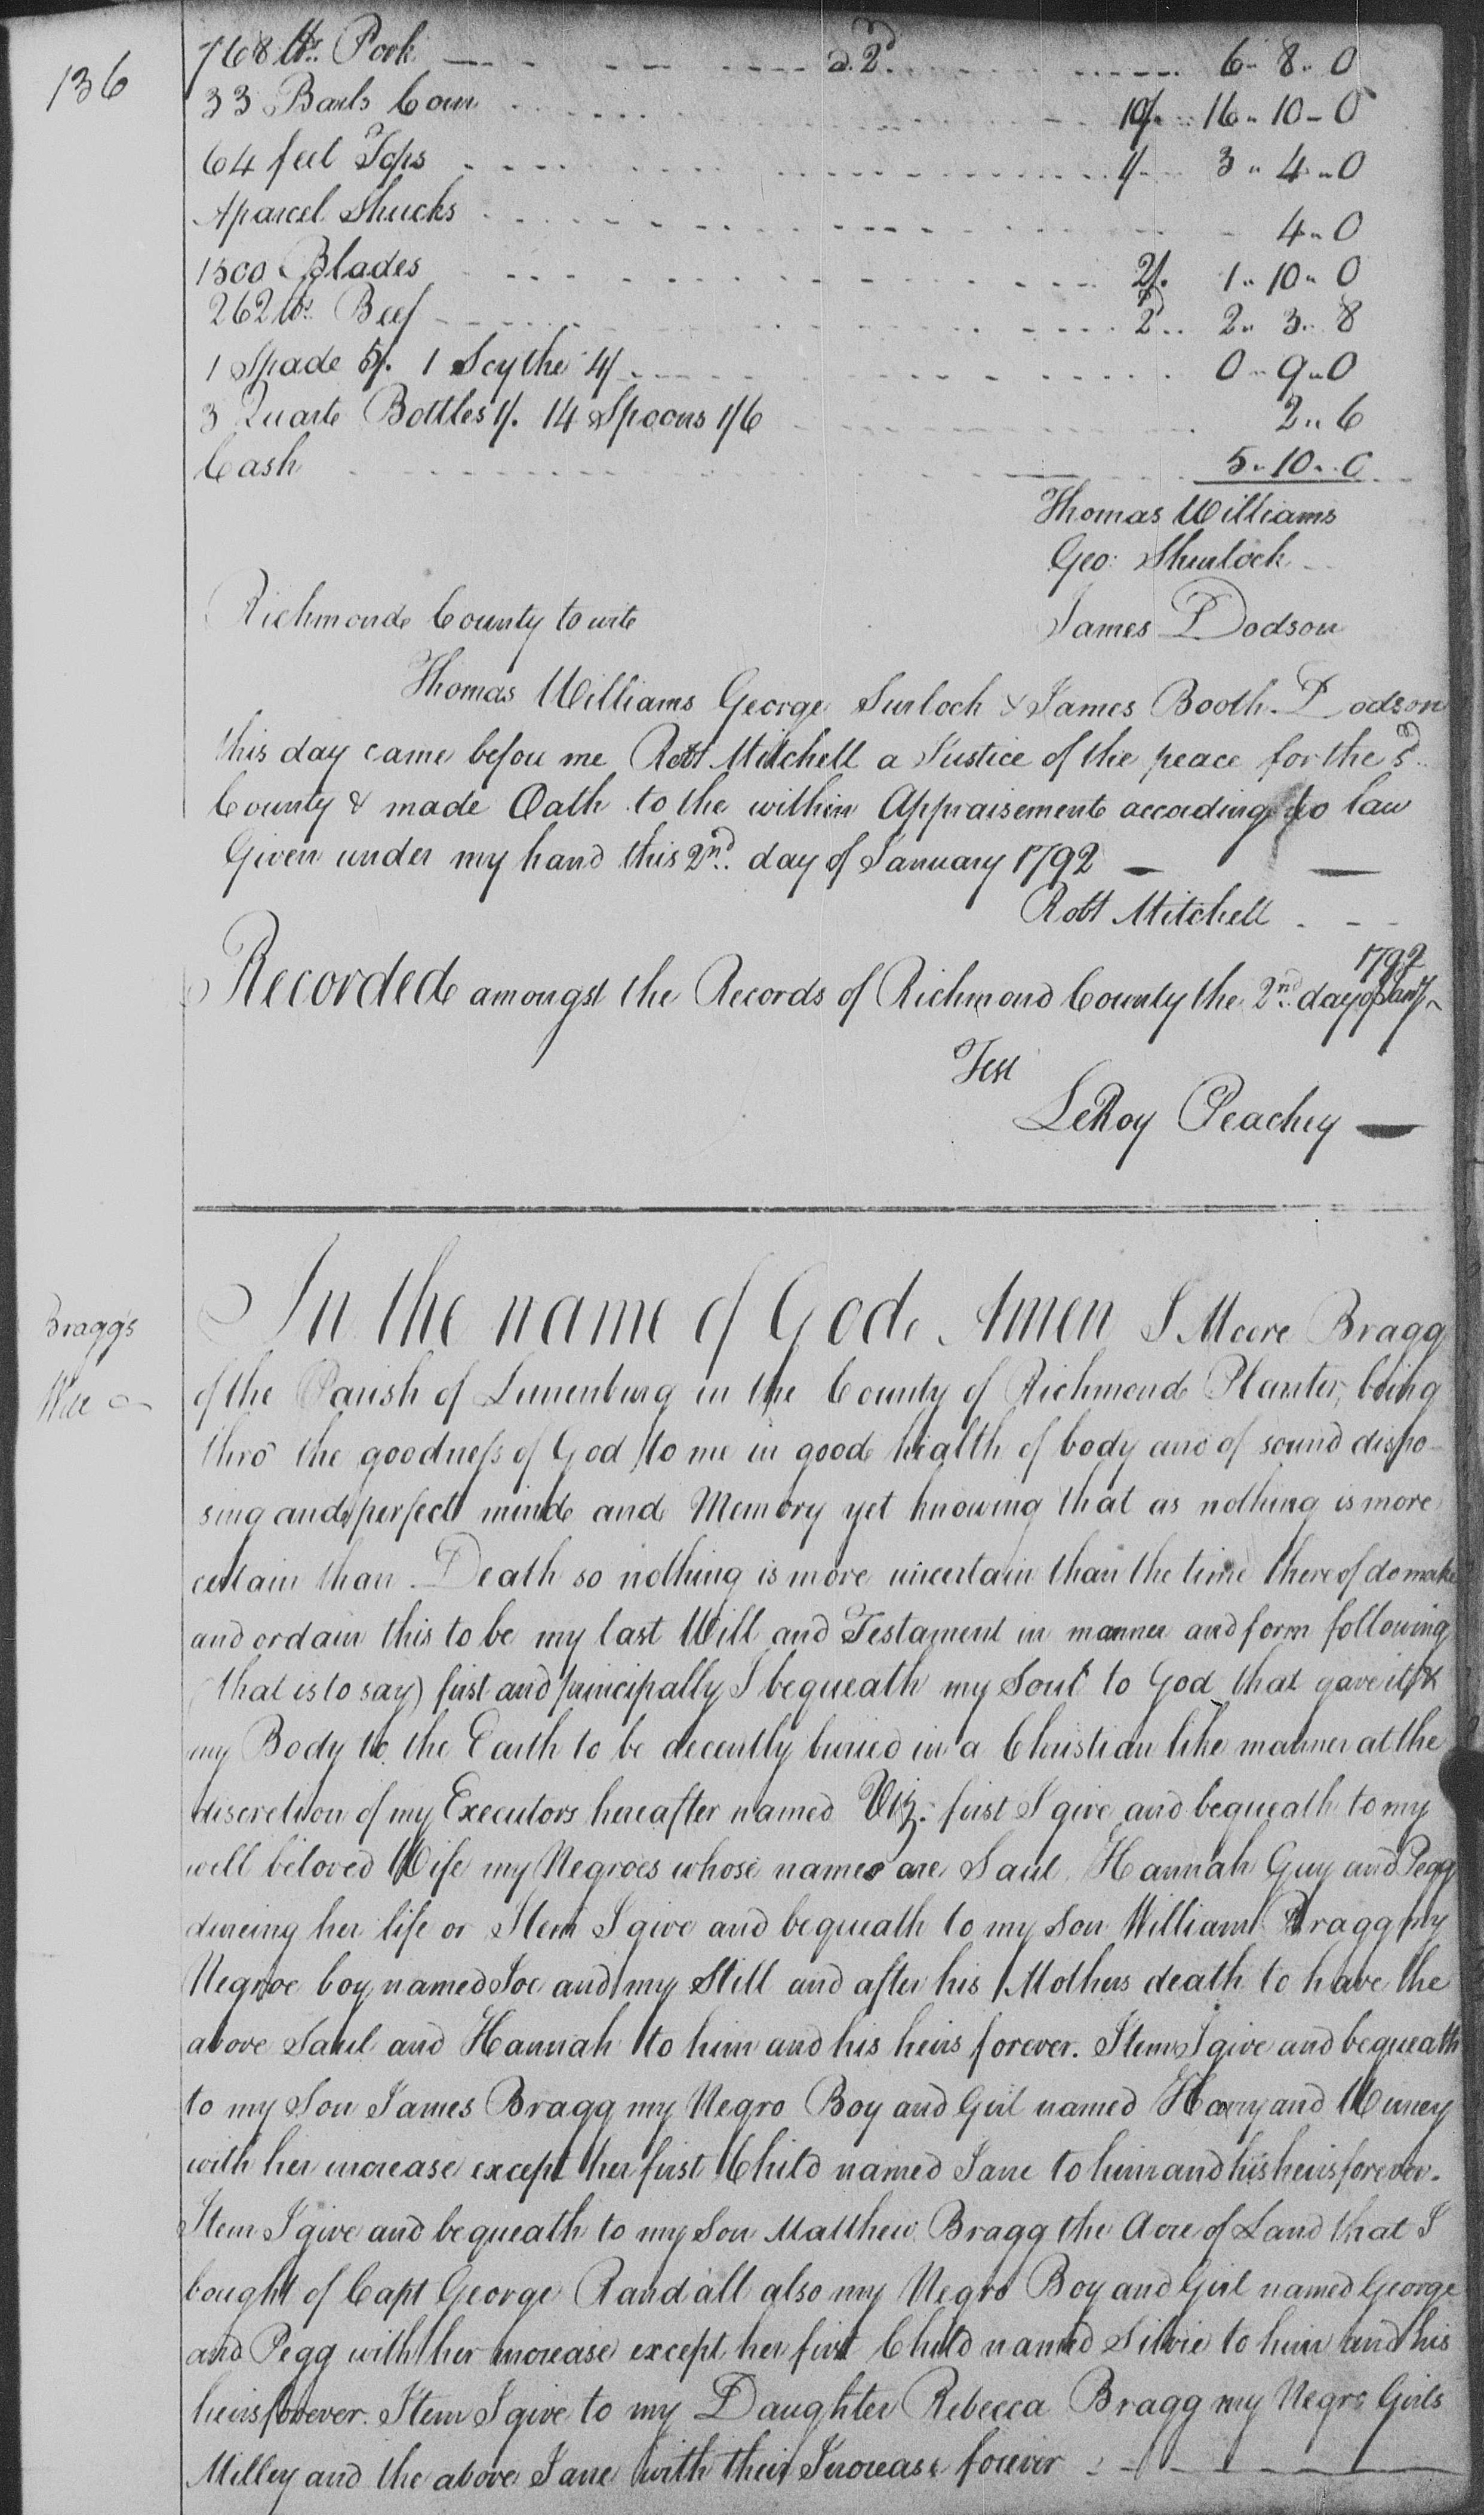 136
768 lbs. Pork a. 2d 6.. 8.. 0
33 Barls Corn 10/. 16.. 10 - 0
64 feet Tops 1/. 3.. 4.. 0
A parcel Shucks 4.. 0
1500 Blades 2/. 1.. 10.. 0
262 lbs. Beef 2d 2.. 3.. 8
1 Spade 5/. 1 Scythe 4/ 0.. 9.. 0
3 Quarte Bottles 1/. 14 Spoons 1/6 2.. 6
Cash 5.. 10.. 0
Thomas Williams
Geo: Shurlock
Richmond County to wit James Dodson
Thomas Williams George Surlock & James Booth Dodson
this day came before me Robt Mitchell a Justice of the peace for the sd..
County & made Oath to the within Appraisement according to law
Given under my hand this 2nd. day of January 1792 —
Robt Mitchell
Recorded amongst the Records of Richmond County the 2nd. day of Jany 1792
Test
LeRoy Peachey —
Bragg's
Will
In the name of God Amen I Moore Bragg
of the Parish of Lunenburg in the County of Richmond Planter, being
thro the goodness of God to me in good health of body and of sound dispo-
sing and perfect mind and Memory yet knowing that as nothing is more
certain than Death so nothing is more uncertain than the time thereof do make
and ordain this to be my last Will and Testament in manner and form following
(that is to say) first and principally I bequeath my Soul to God that gave it &
my Body to the Earth to be decently buried in a Christian like manner at the
discretion of my Executors hereafter named Viz. first I give and bequeath to my
well beloved Wife my Negroes whose names are Saul, Hannah Guy and Pegg
dureing her life or Item I give and bequeath to my Son William Bragg my
Negroe boy named Joe and my Still and after his Mothers death to have the
above Saul and Hannah to him and his heirs forever. Item I give and bequeath
to my Son James Bragg my Negro Boy and Girl named Harry and Winney
with her increase except her first Child named Jane to him and his heirs forever.
Item I give and bequeath to my Son Matthew Bragg the Acre of Land that I
bought of Capt George Randall also my Negro Boy and Girl named George
and Pegg with her increase except her first Child named Silvie to him and his
heirs forever. Item I give to my Daughter Rebecca Bragg my Negro Girls
Milley and the above Jane with their Increase forever